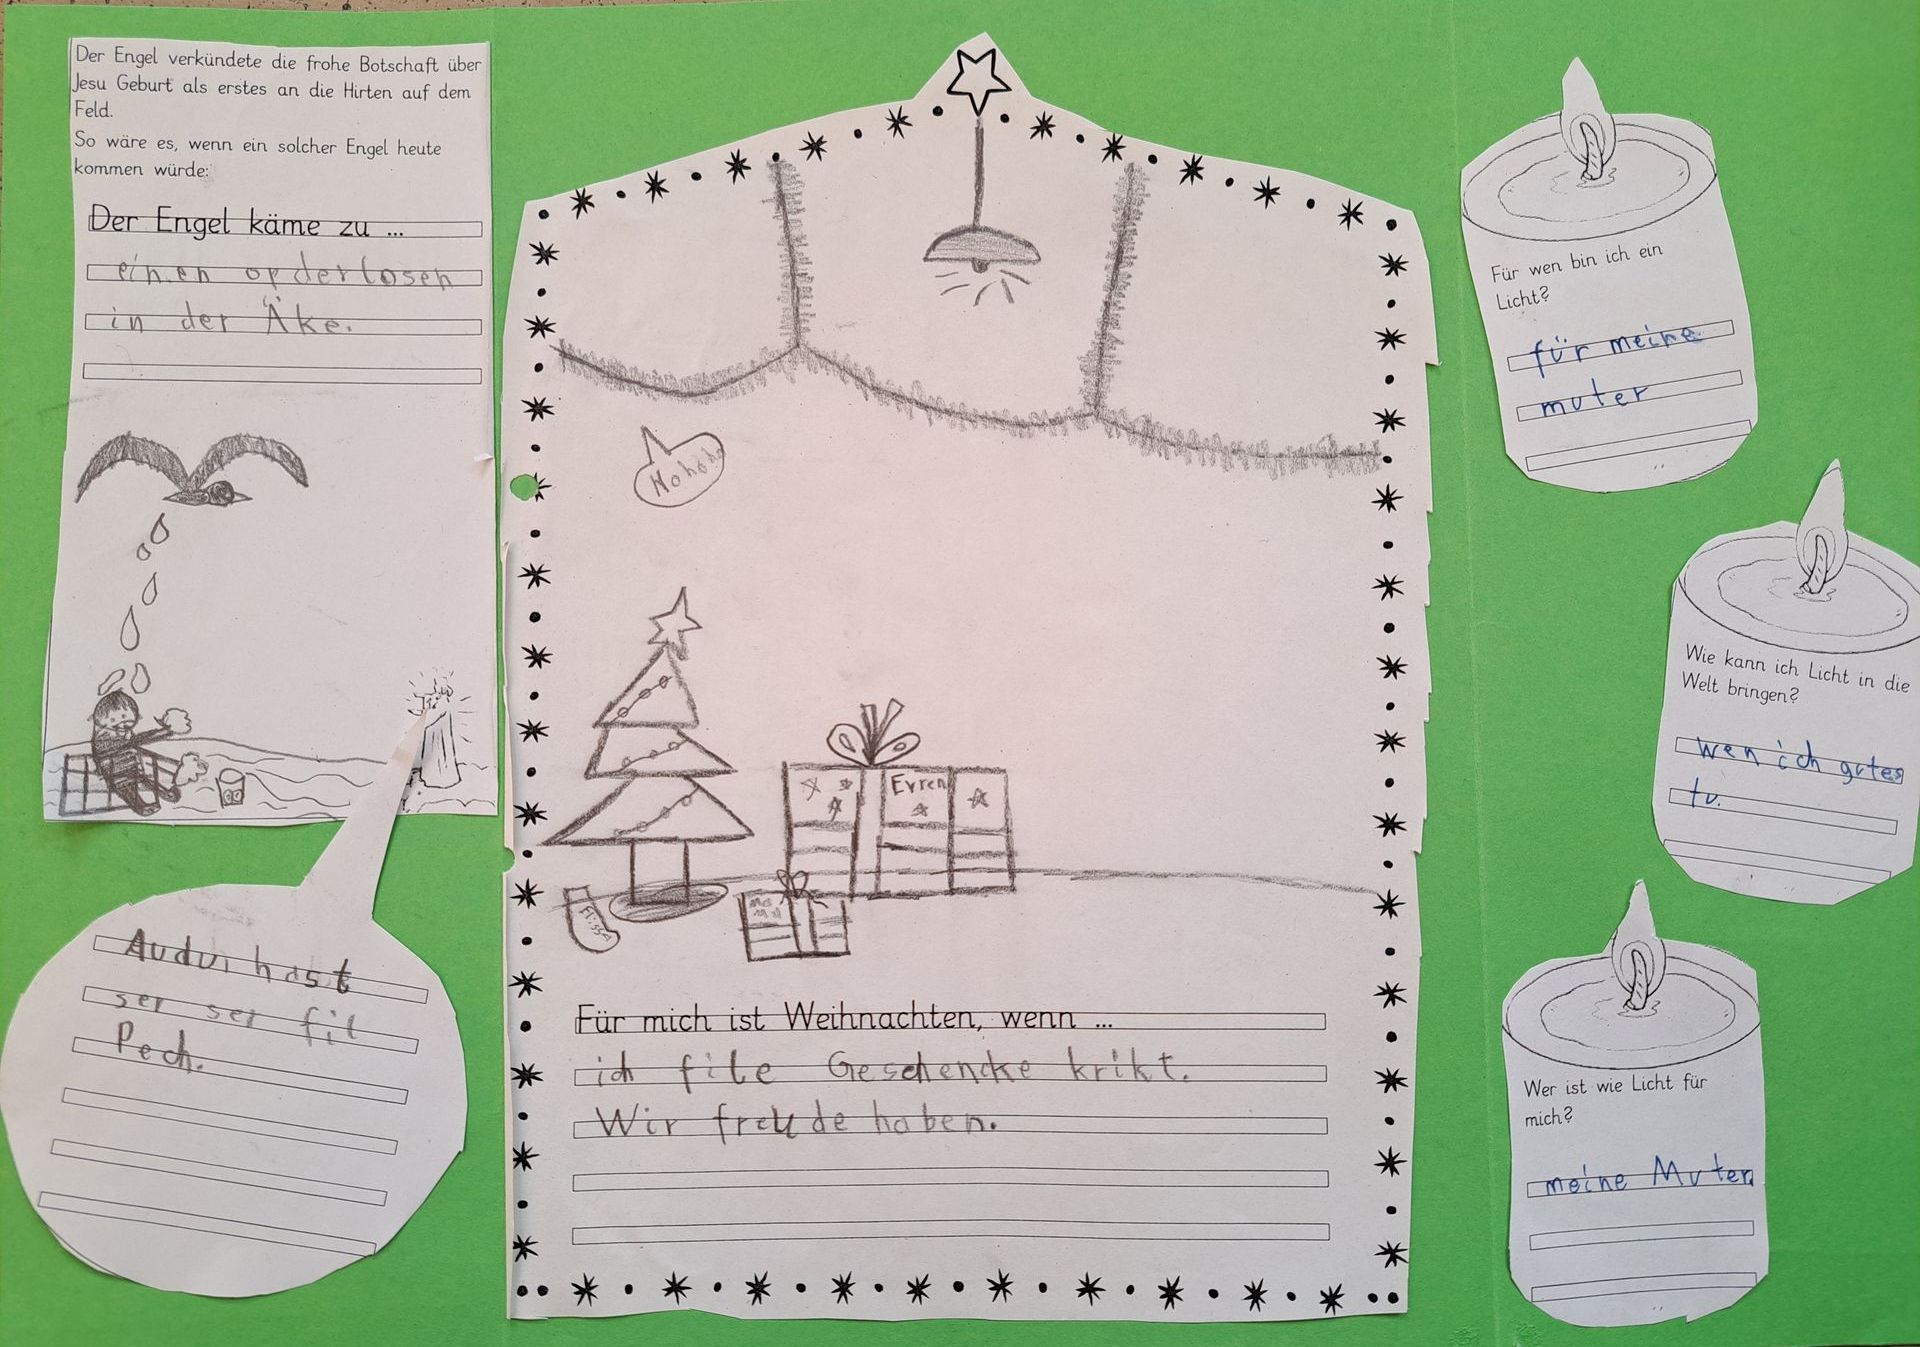 Der Engel verkündete die frohe Botschaft über
Jesu Geburt als erstes an die Hirten auf dem
Feld.
So wäre es, wenn ein solcher Engel heute
kommen würde:
Der Engel käme zu ...
einen opderlosen
in der Äke.
Audui hast
ser ser fil
Pech.
Hohoho
Evren
Für mich ist Weihnachten, wenn ...
ich file Geschencke krikt.
Wir freude haben.
Für wen bin ich ein
Licht?
für meine
muter
Wie kann ich Licht in die
Welt bringen?
wen ich gutes
tu.
Wer ist wie Licht für
mich?
meine Muter